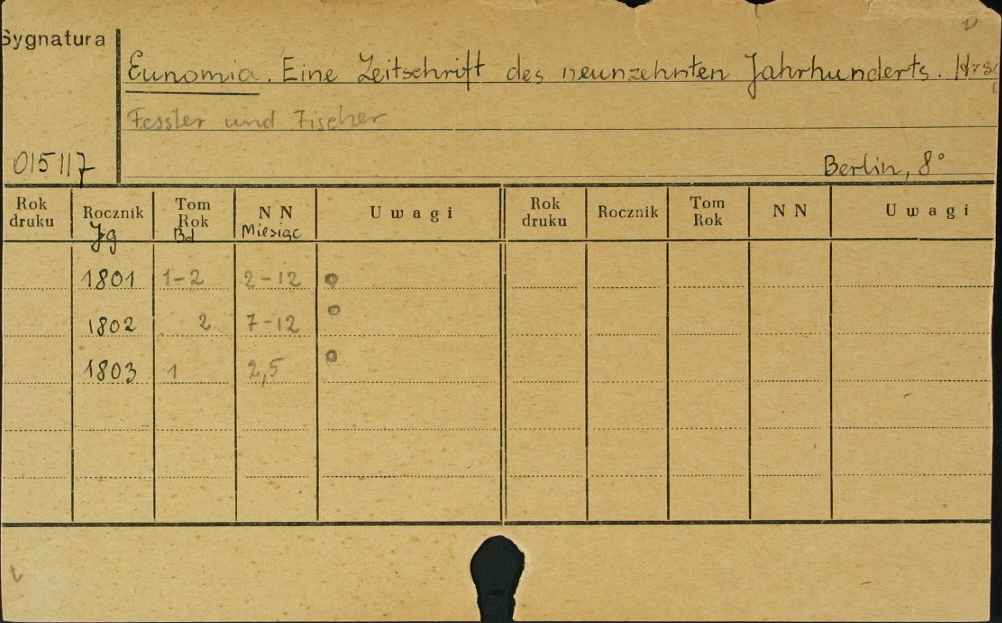 Sygnatura
Eunomia. Eine Zeitschrift des neunzehnten Jahrhunderts. Hrsg
Fessler und Fischer
015117
Berlin, 8°
Rok druku Rocznik Tom Rok NN Uwagi Rok druku Rocznik Tom Rok NN Uwagi
Jg Bd Miesiąc
1801 1-2 2-12
1802 2 7-12
1803 1 2,5